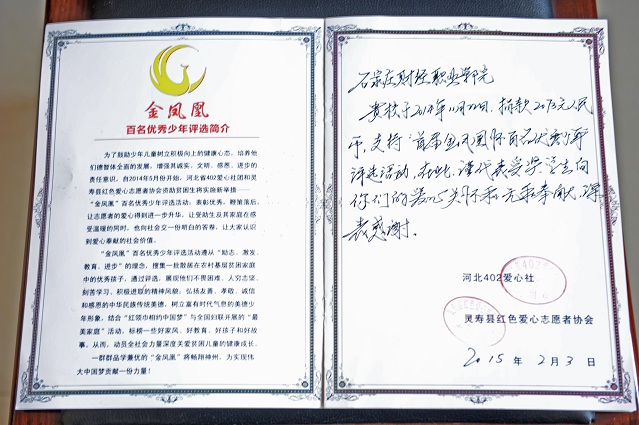 金凤凰
百名优秀少年评选简介
为了鼓励少年儿童树立积极向上的健康心态，培养他
们德智体全面的发展，增强其诚实、文明、感恩、进步的
责任意识。自2014年5月份开始，河北省402爱心社团和灵
寿县红色爱心志愿者协会资助贫困生将实施新举措——
“金凤凰”百名优秀少年评选活动：表彰优秀、鞭策落后，
让志愿者的爱心得到进一步升华，让受助生及其家庭在感
受温暖的同时，也向社会交一份明白的答卷，让大家认识
到爱心奉献的社会价值。
“金凤凰”百名优秀少年评选活动遵从“励志、激发、
教育、进步”的理念，搜集一批散居在农村基层贫困家庭
中的优秀孩子，通过评选，展现他们不畏困难、人穷志坚、
刻苦学习、积极进取的精神风貌；弘扬友善、孝敬、诚信
和感恩的中华民族传统美德，树立富有时代气息的美德少
年形象，结合“红领巾相约中国梦”与全国妇联开展的“最
美家庭”活动，标榜一些好家风、好教育、好孩子和好故
事，从而，动员全社会力量深度关爱贫困儿童的健康成长。
一群群品学兼优的“金凤凰”将畅翔神州，为实现伟
大中国梦贡献一份力量！
石家庄财经职业学院
贵校于2014年11月22日，捐款2073元人民
币，支持“首届金凤凰杯百名优秀少年
评选活动，在此，谨代表受奖学生向
你们的爱心关怀和无私奉献，深
表感谢。
河北402爱心社
灵寿县红色爱心志愿者协会
2015 年 2 月 3 日